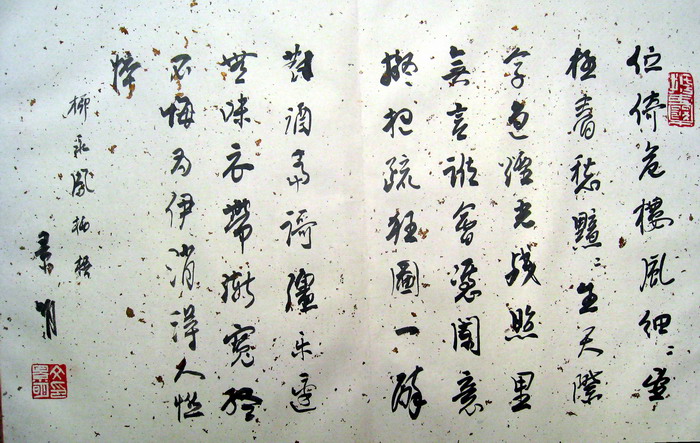 佇倚危樓風細々望
極春愁黯々生天際
草色煙光残照里
無言誰會憑闌意
擬把疏狂圖一醉
對酒當歌彊樂還
無味衣帶漸寬終
不悔為伊消得人憔
悴
柳永鳳栖梧
景明